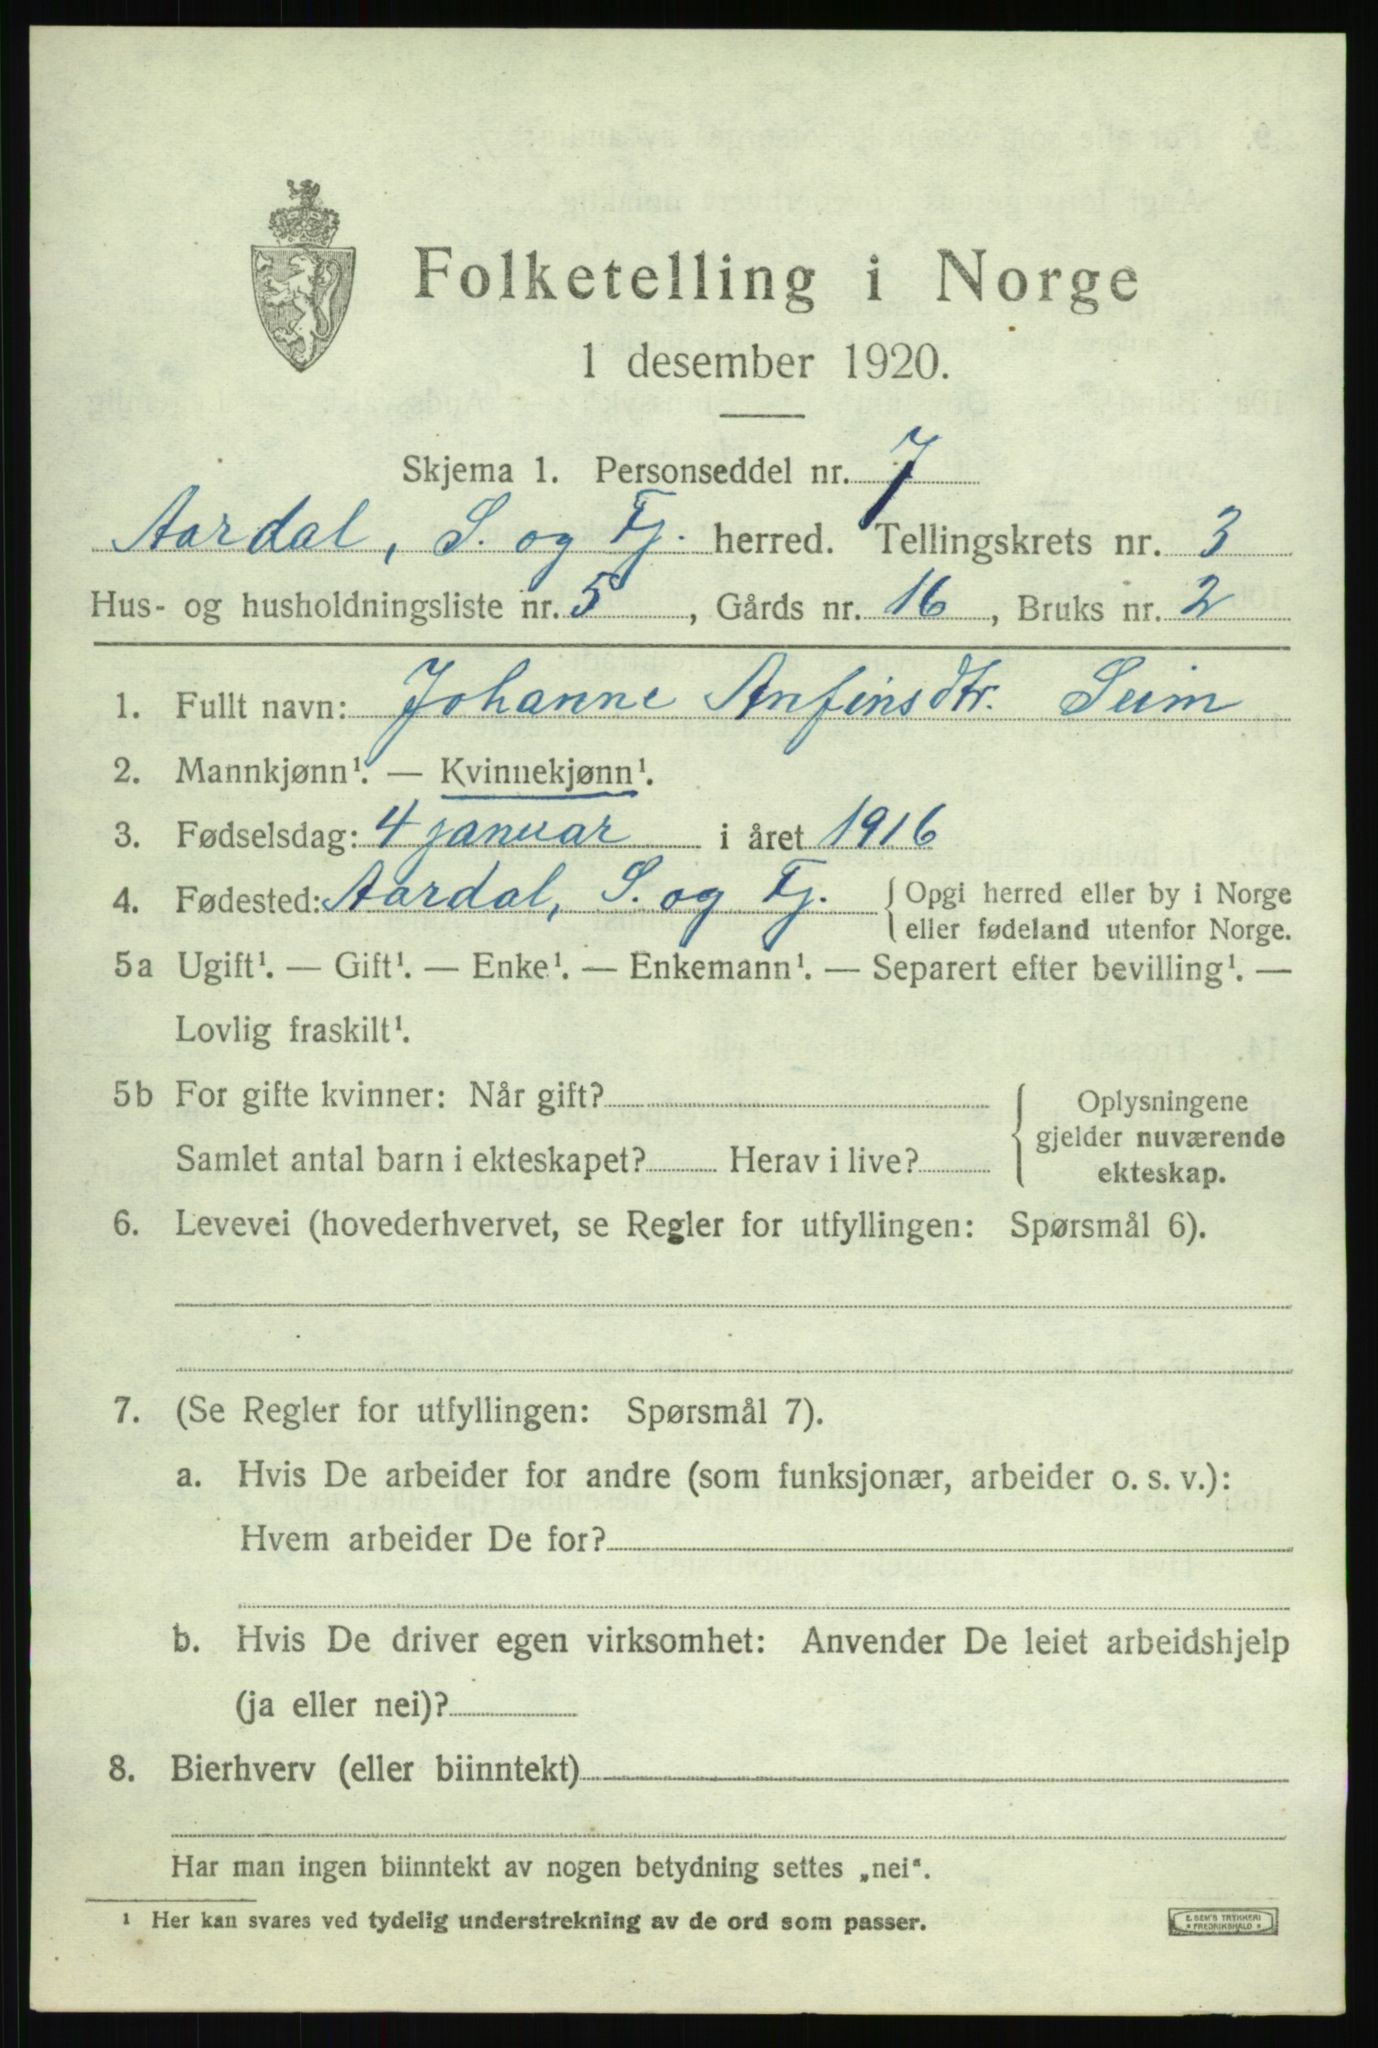 Folketelling i Norge
1 desember 1920.
Skjema 1. Personseddel nr. 7
Aardal, S. og Fj. herred. Tellingskrets nr. 3
Hus- og husholdningsliste nr. 5, Gårds nr. 16, Bruks nr. 2
1. Fullt navn: Johanne Anfinsdtr. Seim
2. Mannkjønn¹. — Kvinnekjønn¹.
3. Fødselsdag: 4 januar i året 1916
4. Fødested: Aardal, S. og Fj. { Opgi herred eller by i Norge
eller fødeland utenfor Norge.
5a Ugift¹. — Gift¹. — Enke¹. — Enkemann¹. — Separert efter bevilling¹. —
Lovlig fraskilt¹.
5b For gifte kvinner: Når gift?
Samlet antal barn i ekteskapet? Herav i live?
{ Oplysningene
gjelder nuværende
ekteskap.
6. Levevei (hovederhvervet, se Regler for utfyllingen: Spørsmål 6).
7. (Se Regler for utfyllingen: Spørsmål 7).
a. Hvis De arbeider for andre (som funksjonær, arbeider o. s. v.):
Hvem arbeider De for?
b. Hvis De driver egen virksomhet: Anvender De leiet arbeidshjelp
(ja eller nei)?
8. Bierhverv (eller biinntekt)
Har man ingen biinntekt av nogen betydning settes „nei“.
¹ Her kan svares ved tydelig understrekning av de ord som passer.
E. SEM'S TRYKKERI
* FREDRIKSHALD *